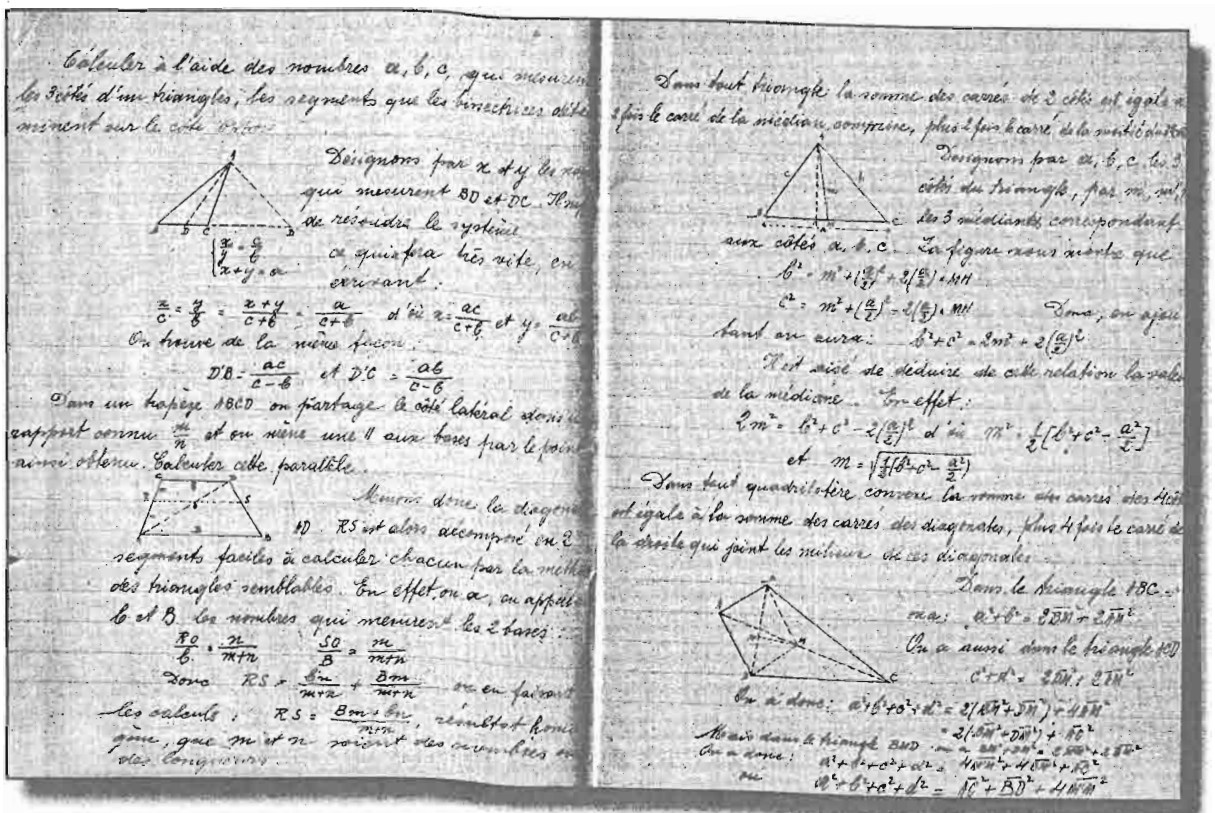 Calculer à l'aide des nombres a, b, c, qui mesurent
les 3 côtés d'un triangles, les segments que les bissectrices déter
minent sur le côté
Désignons par x et y les
qui mesurent BD et DC. Il
de résoudre le système
{x/y = c/b
x+y = a
ce qui fera très vite, en
écrivant :
x/c = y/b = x+y/c+b = a/c+b d'où x = ac/c+b et y = ab/c+b
On trouve de la même façon :
D'B = ac/c-b et D'C = ab/c-b
Dans un trapèze ABCD on partage le côté latéral dans
rapport connu m/n et on mène une // aux bases par le point
ainsi obtenu. Calculer cette parallèle.
Menons donc la diagona
AD. RS est alors décomposé en 2
segments faciles à calculer chacun par la métho
des triangles semblables. En effet, on a, en appel
b et B les nombres qui mesurent les 2 bases :
RO/b = n/m+n SO/B = m/m+n
Donc RS = bn/m+n + Bm/m+n ou en faisant
les calculs : RS = Bm+bn/m+n, résultat homo
gène, que m et n soient des nombres ou
des longueurs.
Dans tout triangle la somme des carrés de 2 côtés est égale à
2 fois le carré de la médiane comprise, plus 2 fois le carré de la moitié du
Désignons par a, b, c les 3
côtés du triangle, par m, m',
les 3 médianes correspondant
aux côtés a, b, c. La figure nous montre que
b² = m² + (a/2)² + 2(a/2) · MH
c² = m² + (a/2)² - 2(a/2) · MH Donc, en ajou
tant on aura : b² + c² = 2m² + 2(a/2)²
Il est aisé de déduire de cette relation la vale
de la médiane. En effet :
2m² = b² + c² - 2(a/2)² d'où m² = 1/2[b² + c² - a²/2]
et m = √1/2(b² + c² - a²/2)
Dans tout quadrilatère convexe la somme des carrés des 4 côt
est égale à la somme des carrés des diagonales, plus 4 fois le carré de
la droite qui joint les milieux de ces diagonales.
Dans le triangle ABC
on a : a² + b² =
On a aussi dans le triangle ACD
c² + d² =
On a donc : a² + b² + c² + d² =
Mais dans le triangle BMD on a
On a donc : a² + b² + c² + d² =
ou a² + b² + c² + d² = AC² + BD² + 4